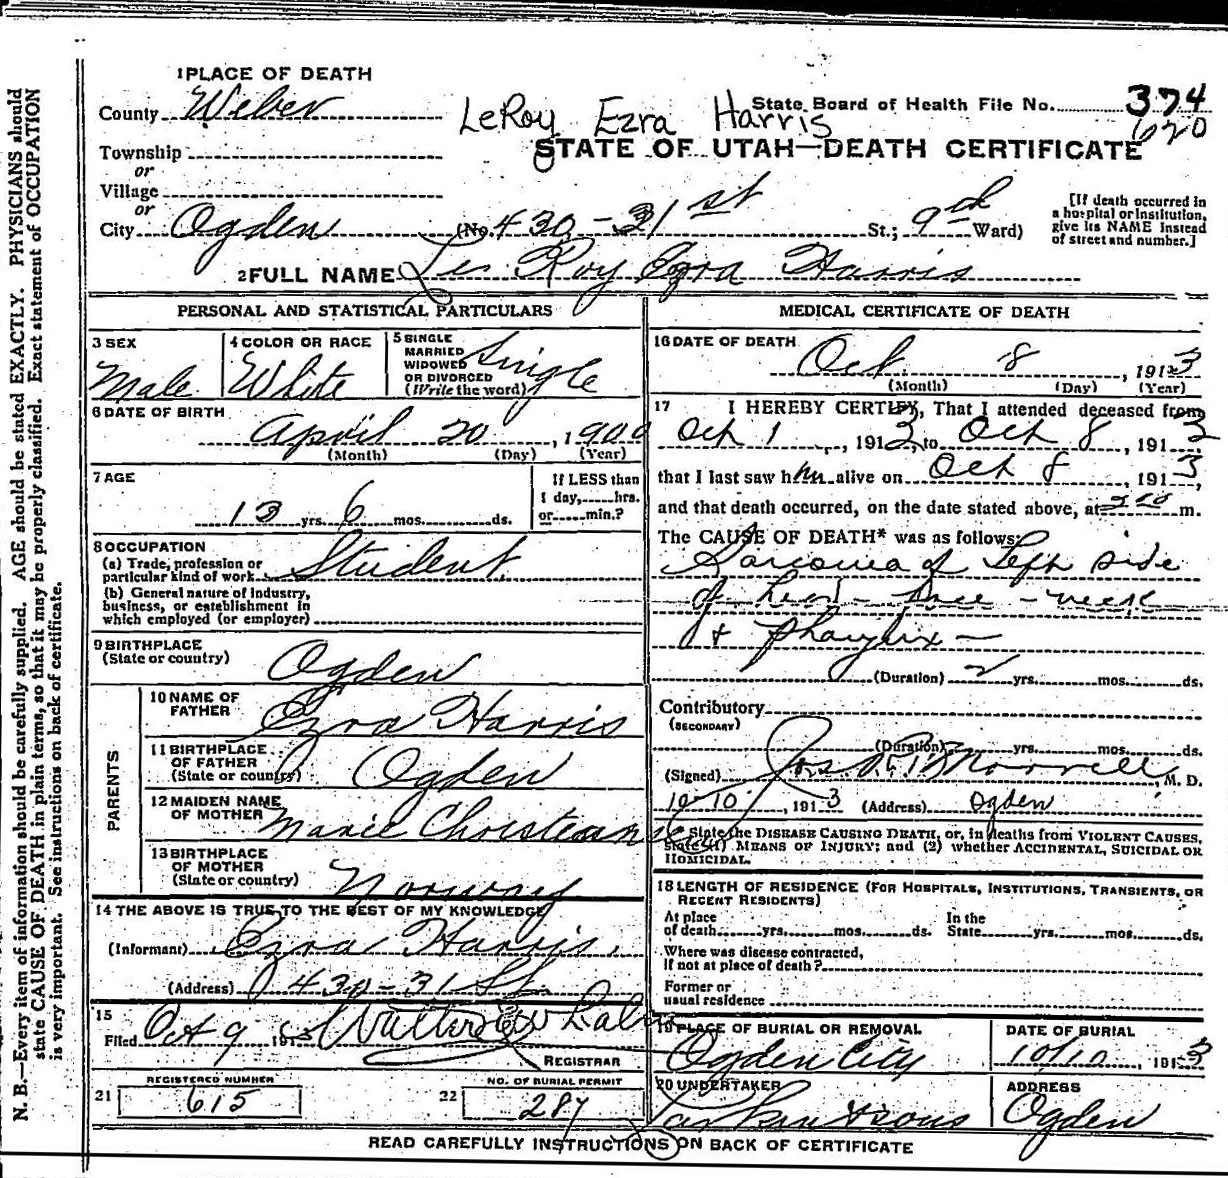 1 PLACE OF DEATH
County Weber
LeRoy Ezra Harris
State Board of Health File No. 374
620
Township
or
STATE OF UTAH—DEATH CERTIFICATE
Village
or
City Ogden (No. 430-31st St.; 9th Ward)
[If death occurred in a hospital or institution, give its NAME instead of street and number.]
2 FULL NAME Le Roy Ezra Harris
PERSONAL AND STATISTICAL PARTICULARS
3 SEX
Male
4 COLOR OR RACE
White
5 SINGLE
MARRIED
WIDOWED
OR DIVORCED
(Write the word)
Single
6 DATE OF BIRTH
April 20, 1900
(Month) (Day) (Year)
7 AGE
13 yrs. 6 mos. ds.
If LESS than
1 day, hrs.
or min.?
8 OCCUPATION
(a) Trade, profession or
particular kind of work Student
(b) General nature of industry,
business, or establishment in
which employed (or employer)
9 BIRTHPLACE
(State or country) Ogden
PARENTS
10 NAME OF
FATHER Ezra Harris
11 BIRTHPLACE
OF FATHER
(State or country) Ogden
12 MAIDEN NAME
OF MOTHER Marie Christeansen
13 BIRTHPLACE
OF MOTHER
(State or country) Norway
14 THE ABOVE IS TRUE TO THE BEST OF MY KNOWLEDGE
(Informant) Ezra Harris
(Address) 430-31 St.
15
Filed Oct 9 1913 Walter
REGISTRAR
REGISTERED NUMBER
21 615
NO. OF BURIAL PERMIT
22 287
MEDICAL CERTIFICATE OF DEATH
16 DATE OF DEATH
Oct. 8, 1913
(Month) (Day) (Year)
17 I HEREBY CERTIFY, That I attended deceased from
Oct 1, 1913, to Oct 8, 1913
that I last saw him alive on Oct 8, 1913,
and that death occurred, on the date stated above, at m.
The CAUSE OF DEATH* was as follows:
Sarcoma of Left side
of head - - neck
& pharynx -
(Duration) 2 yrs. mos. ds.
Contributory
(SECONDARY)
(Duration) yrs. mos. ds.
(Signed) Jos. R. Morrell, M. D.
10-10, 1913 (Address) Ogden
* State the DISEASE CAUSING DEATH, or, in deaths from VIOLENT CAUSES,
state (1) MEANS OF INJURY; and (2) whether ACCIDENTAL, SUICIDAL OR
HOMICIDAL.
18 LENGTH OF RESIDENCE (FOR HOSPITALS, INSTITUTIONS, TRANSIENTS, OR
RECENT RESIDENTS)
At place
of death yrs. mos. ds.
In the
State yrs. mos. ds.
Where was disease contracted,
If not at place of death?
Former or
usual residence
19 PLACE OF BURIAL OR REMOVAL
Ogden City
DATE OF BURIAL
10/10 1913
20 UNDERTAKER
ADDRESS
Ogden
READ CAREFULLY INSTRUCTIONS ON BACK OF CERTIFICATE
N. B.—Every item of information should be carefully supplied. AGE should be stated EXACTLY. PHYSICIANS should
state CAUSE OF DEATH in plain terms, so that it may be properly classified. Exact statement of OCCUPATION
is very important. See instructions on back of certificate.